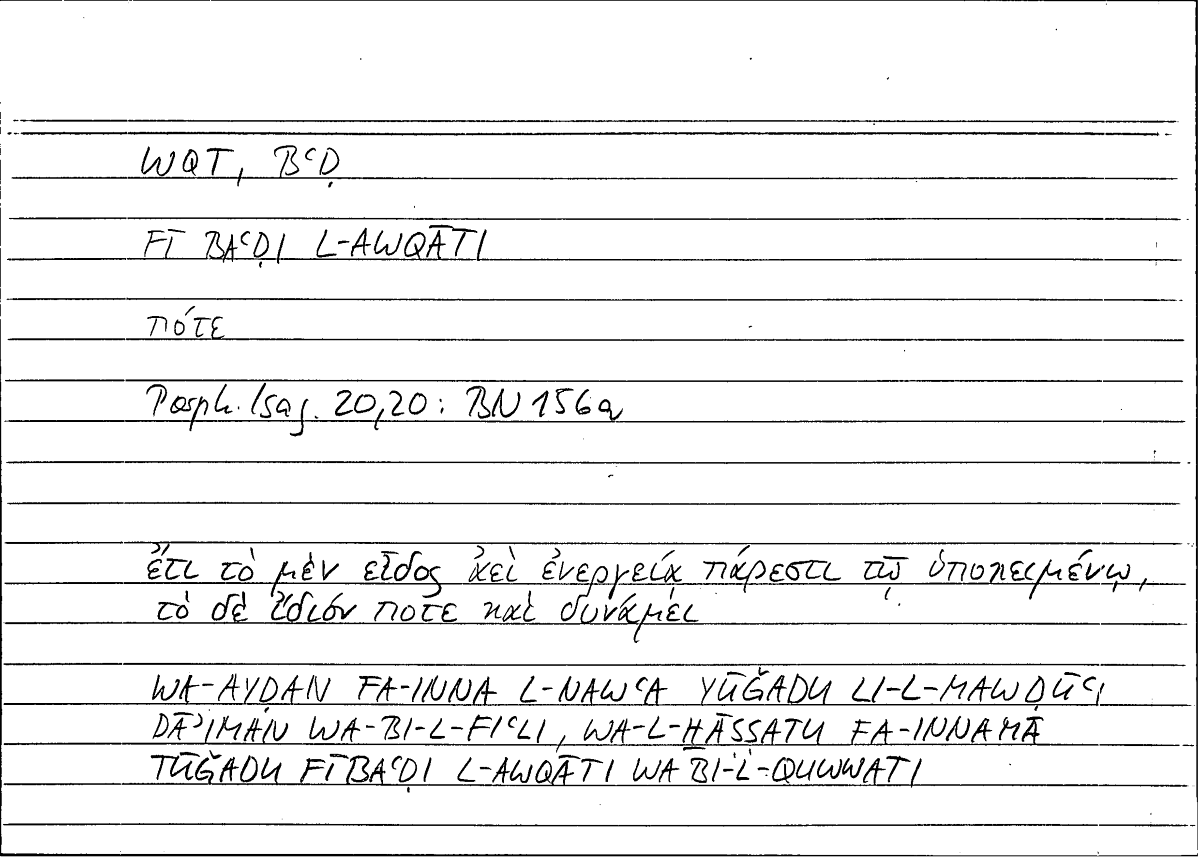 WQT, BʿḌ
FĪ BAʿḌI L-AWQĀTI
πότε
Porph. Isag. 20,20: BN 156a
ἔτι τὸ μὲν εἶδος ἀεὶ ἐνεργείᾳ πάρεστι τῷ ὑποκειμένῳ,
τὸ δὲ ἴδιόν ποτε καὶ δυνάμει
WA-AYḌAN FA-INNA L-NAWʿA YŪǦADU LI-L-MAWḌŪʿI
DĀʾIMAN WA-BI-L-FIʿLI, WA-L-HĀSSATU FA-INNAMĀ
TŪǦADU FĪ BAʿḌI L-AWQĀTI WA BI-L-QUWWATI